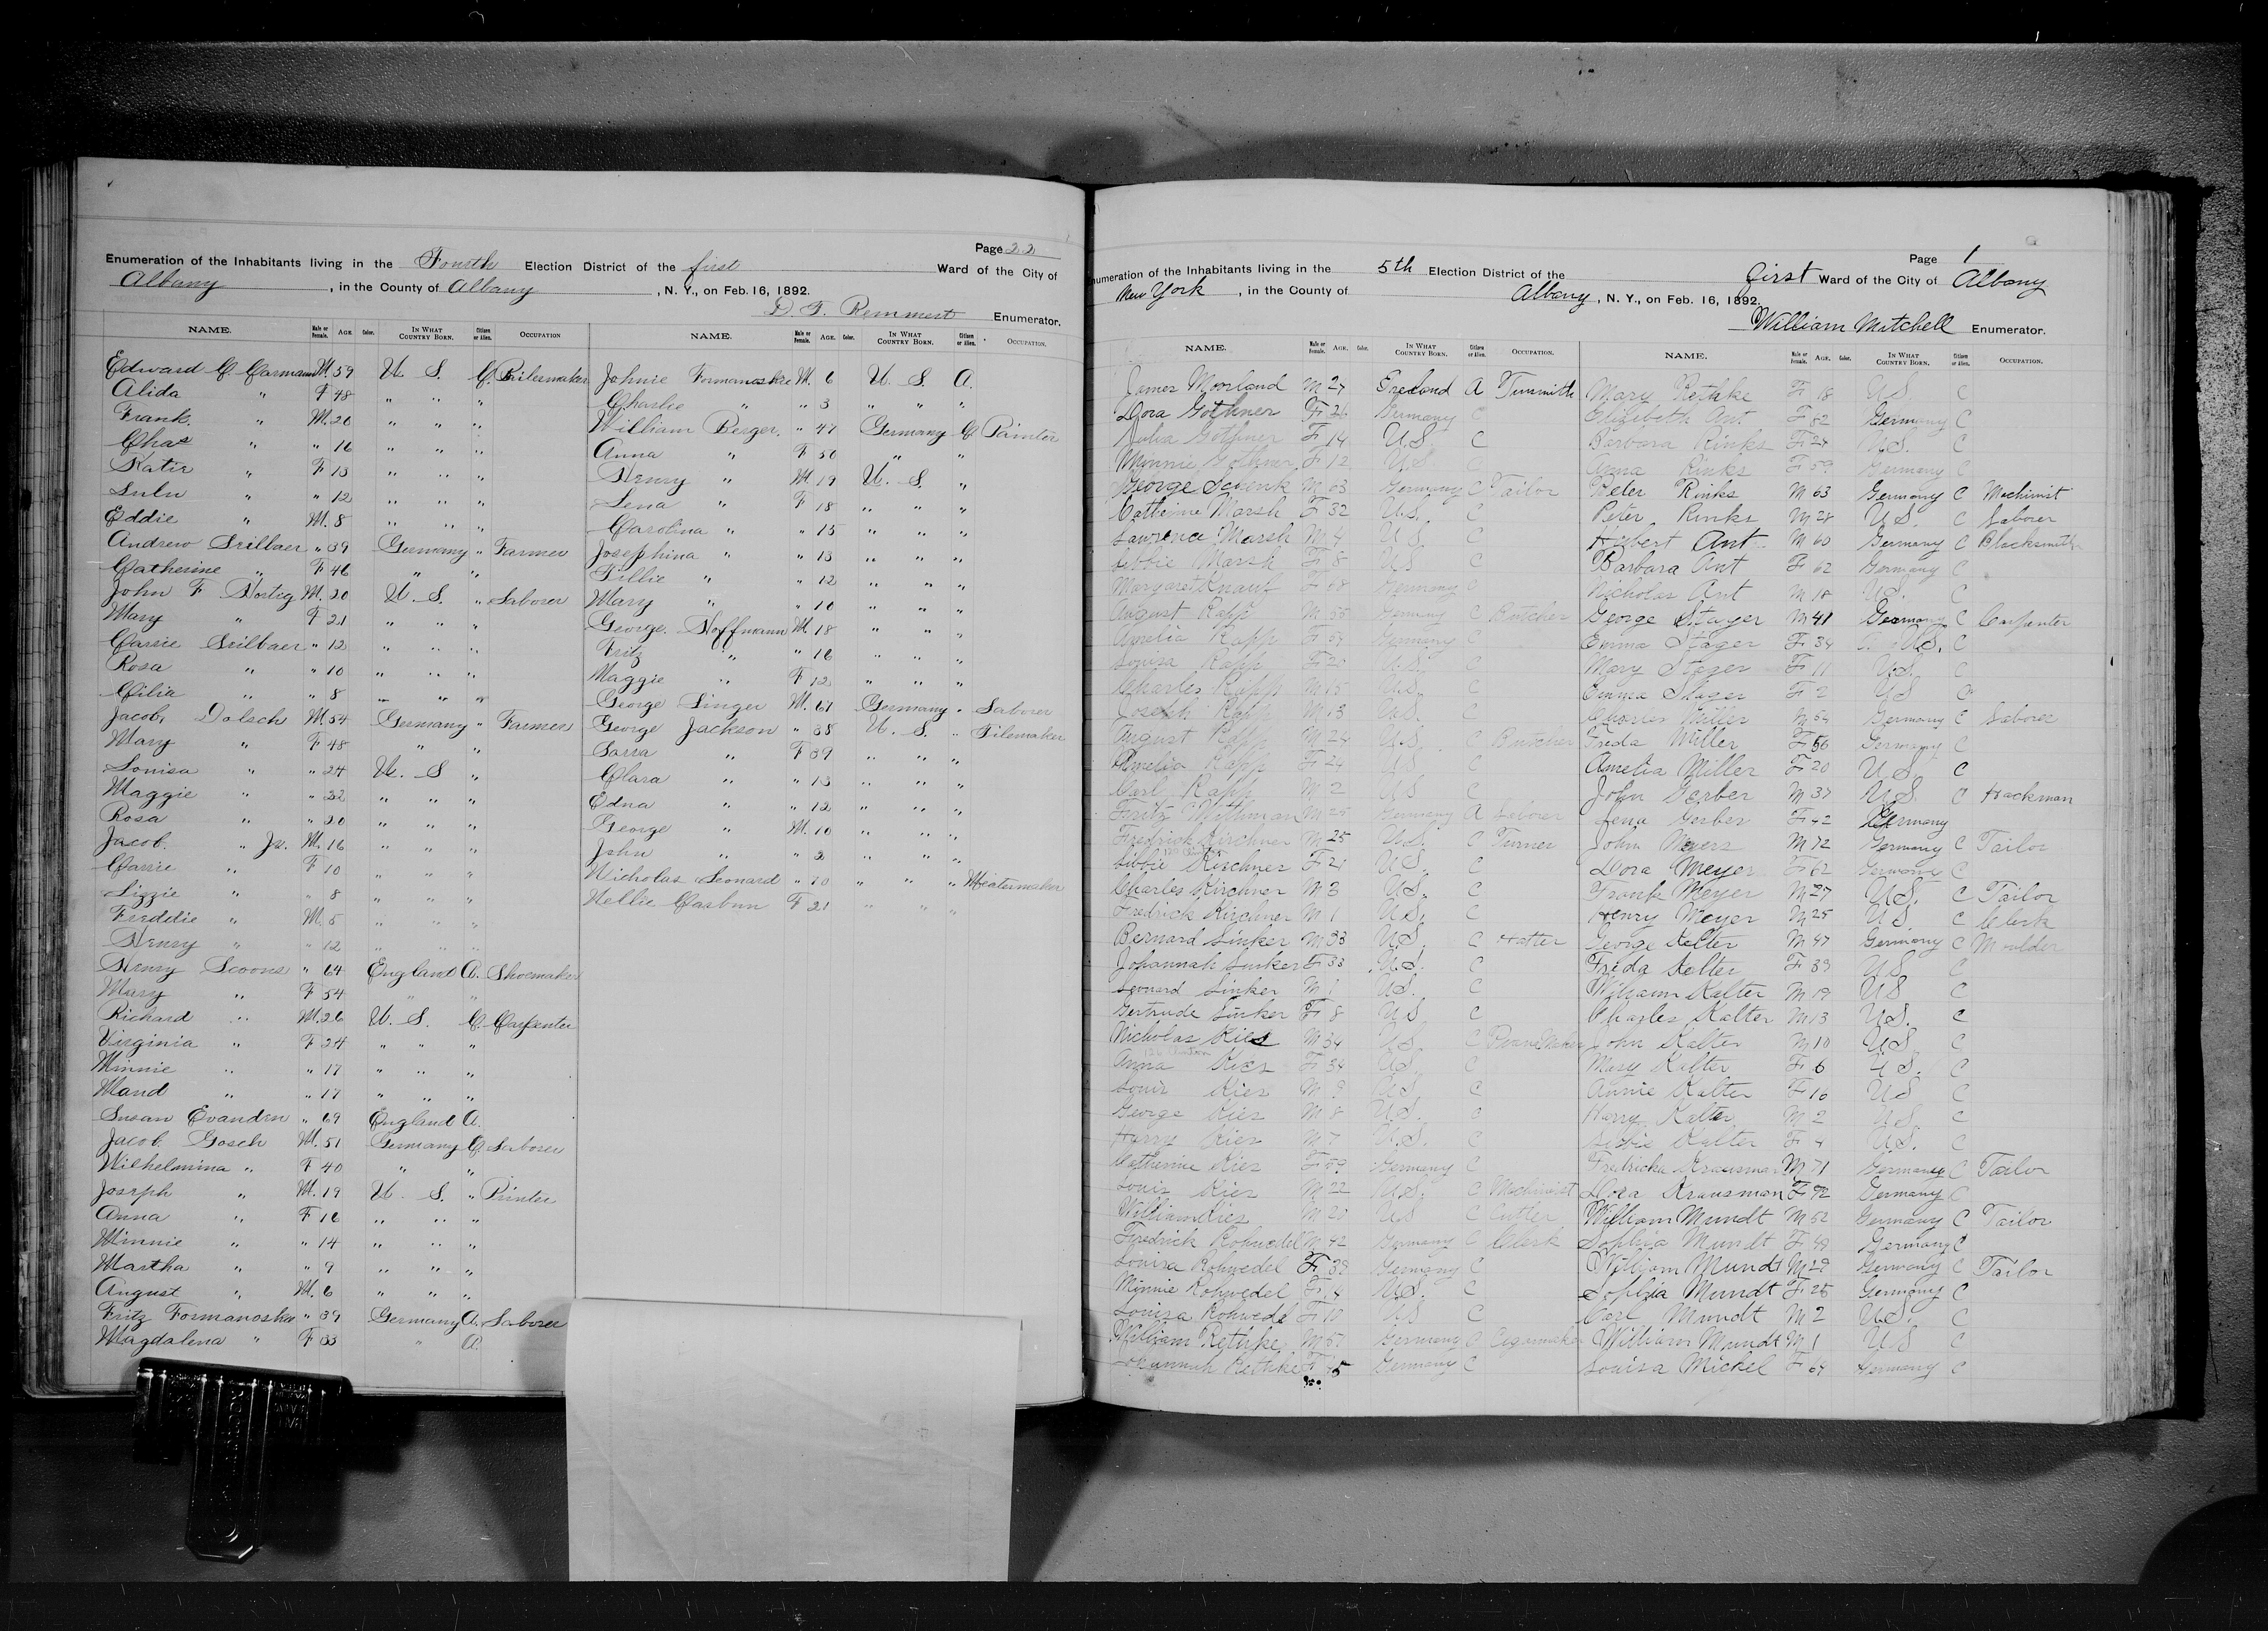 Page 22
Enumeration of the Inhabitants living in the Fourth Election District of the first Ward of the City of
Albany, in the County of Albany, N. Y., on Feb. 16, 1892.
D. F. Remmert Enumerator.
NAME. Male or Female. AGE. Color. IN WHAT COUNTRY BORN. Citizen or Alien. OCCUPATION
Edward C. Carmann M. 59 U. S. C. Boilermaker
Alida " F 48 " " "
Frank " M. 20 " " "
Chas " " 16 " " "
Katie " F 13 " " "
Lulu " " 12 " " "
Eddie " M. 8 " " "
Andrew " 39 Germany " Farmer
Catherine " F 46 " "
John F M. 20 U. S. " Laborer
Mary " F 21 " " "
Carrie " 12 " " "
Rosa " " 10 " " "
Cilia " " 8 " " "
Jacob Dolsch M. 54 Germany " Farmer
Mary " F 48 " "
Louisa " " 24 U. S "
Maggie " " 22 " " "
Rosa " " 20 " " "
Jacob " Jr. M. 16 " " "
Carrie " F 10 " " "
Lizzie " " 8 " " "
Freddie " M. 5 " " "
Henry " " 12 " " "
Henry Scoons " 64 England A. Shoemaker
Mary " F 54 " "
Richard " M. 26 U. S. C. Carpenter
Virginia " F 24 " " "
Minnie " " 17 " " "
Maud " " 17 " " "
Susan " 69 England A.
Jacob Gosch M. 51 Germany C. Laborer
Wilhelmina " F 40 " "
Joseph " M. 19 U. S. " Printer
Anna " F 16 " " "
Minnie " " 14 " " "
Martha " " 9 " " "
August " M. 6 " " "
Fritz Formanoskie " 39 Germany A. Laborer
Magdalena " F 33 " A.
NAME. Male or Female. AGE. Color. IN WHAT COUNTRY BORN. Citizen or Alien. OCCUPATION.
Johnie Formanoskie M. 6 U. S. A.
Charlie " " 3 " " "
William Berger. " 47 Germany C. Painter
Anna " F 50 " "
Henry " M. 19 U. S. "
Lena " F 18 " " "
Carolina " " 15 " " "
Josephina " " 13 " " "
Tillie " " 12 " " "
Mary " " 10 " " "
George Hoffmann M. 18 " " "
Fritz " " 16 " " "
Maggie " F 12 " " "
George Singer M. 67 Germany " Laborer
George Jackson " 38 U. S. " Filemaker
Sarra " F 39 " " "
Clara " " 13 " " "
Edna " " 12 " " "
George " M. 10 " " "
John " " 2 " " "
Nicholas Leonard " 70 " " "
Nellie F 21 " " "
Page 1
Enumeration of the Inhabitants living in the 5th Election District of the first Ward of the City of Albany
New York, in the County of Albany, N. Y., on Feb. 16, 1892.
William Mitchell Enumerator.
NAME. Male or Female. AGE. Color. IN WHAT COUNTRY BORN. Citizen or Alien. OCCUPATION.
James Moorland M 27 A Tinnsmith
Dora Gothner F 26 Germany C
Julia Gothner F 14 U.S. C
Minnie Gothner F 12 U.S. C
George Schenk M 63 Germany C Tailor
Catherine Marsh F 32 U.S. C
Lawrence Marsh M 4 U.S. C
Libbie Marsh F 8 U.S C
Margaret Knauf F 68 Germany C
August Rapp M 55 Germany C Butcher
Amelia Rapp F Germany C
Louisa Rapp F 20 U.S. C
Charles Rapp M 15 U.S. C
Joseph Rapp M 13 U.S. C
August Rapp M 24 U.S. C Butcher
Amelia Rapp F 24 U.S C
Carl Rapp M 2 U.S C
Fritz M 25 Germany A Laborer
Fredrick Kirchner M 25 U.S. C Turner
Libbie Kirchner F 21 U.S. C
Charles Kirchner M 3 U.S. C
Fredrick Kirchner M 1 U.S. C
Bernard Linker M 33 U.S. C Hatter
Johannah Linker F 33 U.S. C
Leonard Linker M 1 U.S. C
Gertrude Linker F 8 U S C
Nicholas Kies M 34 U.S. C
Anna Kies F 34 U.S. C
Louis Kies M 9 U.S C
George Kies M 8 U.S. C
Harry Kies M 7 U.S. C
Catherine Kies F 59 Germany C
Louis Kies M 22 U.S. C Machinist
William Kies M 20 U.S C Cutler
Fredrick Rohwedel M 42 Germany C Clerk
Louisa Rohwedel F 39 Germany C
Minnie Rohwedel F 14 U.S. C
Louisa Rohwedel F 10 U.S C
William Rethke M 57 Germany C Cigarmaker
Johannah Rethke F 45 Germany C
NAME. Male or Female. AGE. Color. IN WHAT COUNTRY BORN. Citizen or Alien. OCCUPATION.
Mary Rethke F 18 U S C
Elizibeth Ant F 82 Germany C
Barbara Rinks F 24 U.S. C
Anna Rinks F 59 Germany C
Peter Rinks M 63 Germany C Machinist
Peter Rinks M 28 U S. C Laborer
Hubert Ant M 60 Germany C Blacksmith
Barbara Ant F 62 Germany C
Nicholas Ant M 18 U.S. C
George Stager M 41 Germany C Carpenter
Emma Stager F 34 U.S. C
Mary Stager F 11 U.S. C
Emma Stager F 2 U S C
Charles Miller M 54 Germany C Laborer
Freda Miller F 56 Germany C
Amelia Miller F 20 U.S. C
John Gerber M 37 U.S. C Hackman
Lena Gerber F 42 Germany
John Meyers M 72 Germany C Tailor
Dora Meyer F 62 Germany C
Frank Meyer M 27 U.S. C Tailor
Henry Meyer M 25 U S. C Clerk
George Kalter M 47 Germany C Moulder
Freda Kalter F 39 U S C
William Kalter M 19 U S C
Charles Kalter M 13 U.S. C
John Kalter M 10 U S C
Mary Kalter F 6 U S. C
Annie Kalter F 16 U S C
Harry Kalter M 2 U S C
Libbie Kalter F 4 U.S. C
Fredricka Krausman M 71 Germany C Tailor
Dora Krausman F 72 Germany C
William Mundt M 52 Germany C Tailor
Sophia Mundt F 49 Germany C
William Mundt M 29 Germany C Tailor
Sophia Mundt F 25 Germany C
Carl Mundt M 2 U.S. C
William Mundt M 1 U S C
Louisa Mickel F 69 Germany C